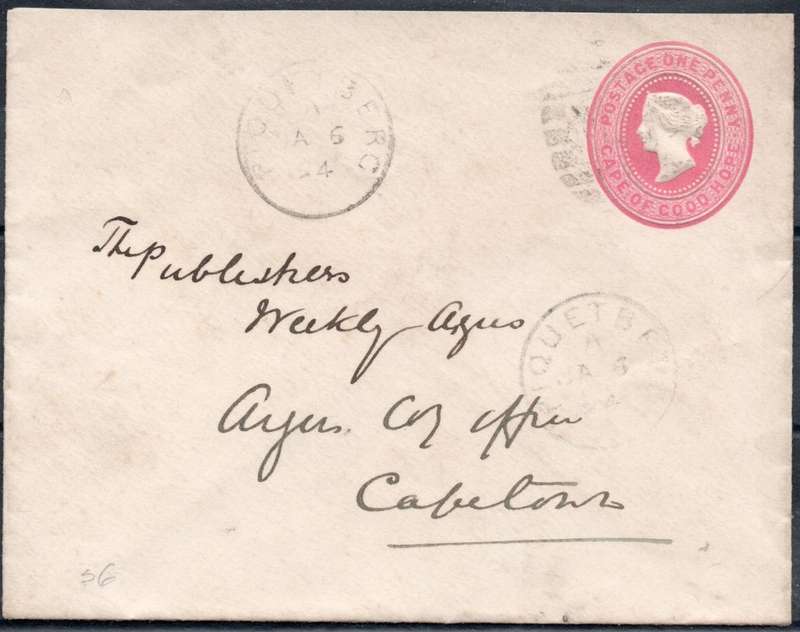 POSTAGE ONE PENNY
CAPE OF GOOD HOPE
PIQUETBERG
A
JA 6
94
The Publishers
Weekly Argus
Argus Coy Office
Capetown
PIQUETBERG
A
JA 6
94
56